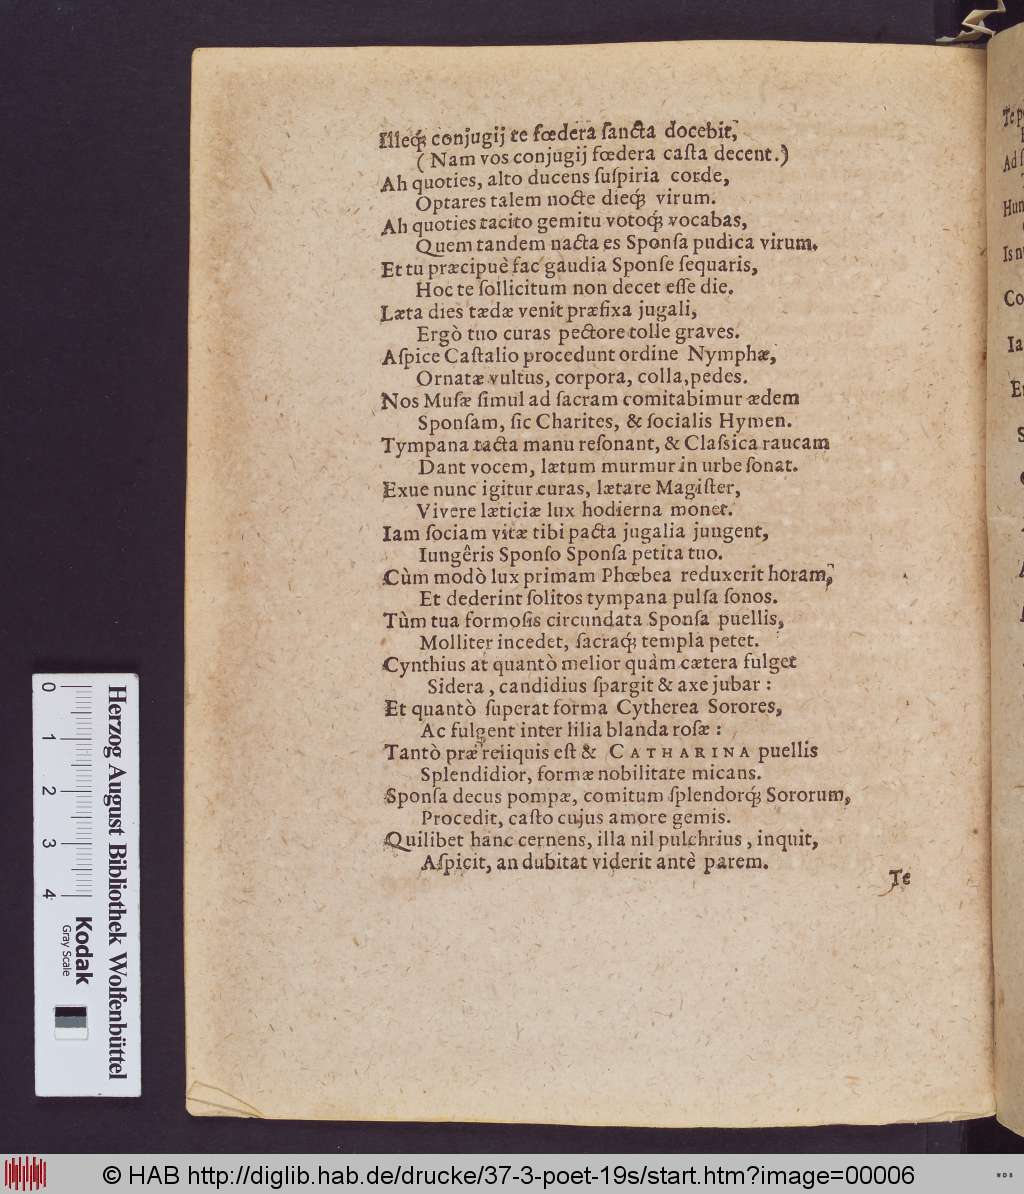 Illeq́; conjugij te fœdera ſancta docebit,
(Nam vos conjugij fœdera caſta decent.)
Ah quoties, alto ducens ſuſpiria corde,
Optares talem nocte dieq́; virum.
Ah quoties tacito gemitu votoq́; vocabas,
Quem tandem nacta es Sponſa pudica virum.
Et tu præcipuè fac gaudia Sponſe ſequaris,
Hoc te ſollicitum non decet eſſe die.
Læta dies tædæ venit præfixa jugali,
Ergò tuo curas pectore tolle graves.
Aſpice Caſtalio procedunt ordine Nymphæ,
Ornatæ vultus, corpora, colla, pedes.
Nos Muſæ ſimul ad ſacram comitabimur ædem
Sponſam, ſic Charites, & ſocialis Hymen.
Tympana tacta manu reſonant, & Claſsica raucam
Dant vocem, lætum murmur in urbe ſonat.
Exue nunc igitur curas, lætare Magiſter,
Vivere læticiæ lux hodierna monet.
Iam ſociam vitæ tibi pacta jugalia jungent,
Iungêris Sponſo Sponſa petita tuo.
Cùm modò lux primam Phœbea reduxerit horam,
Et dederint ſolitos tympana pulſa ſonos.
Tùm tua formoſis circundata Sponſa puellis,
Molliter incedet, ſacraq́; templa petet.
Cynthius at quantò melior quàm cætera fulget
Sidera, candidius ſpargit & axe jubar:
Et quantò ſuperat forma Cytherea Sorores,
Ac fulgent inter lilia blanda roſæ:
Tantò præ reliquis eſt & CATHARINA puellis
Splendidior, formæ nobilitate micans.
Sponſa decus pompæ, comitum ſplendorq́; Sororum,
Procedit, caſto cujus amore gemis.
Quilibet hanc cernens, illa nil pulchrius, inquit,
Aſpicit, an dubitat viderit antè parem.
Te
Te p
Ad ſ
Hun
Is n
Co
Ia
Et
0 1 2 3 4
Herzog August Bibliothek Wolfenbüttel
Kodak
Gray Scale
© HAB http://diglib.hab.de/drucke/37-3-poet-19s/start.htm?image=00006